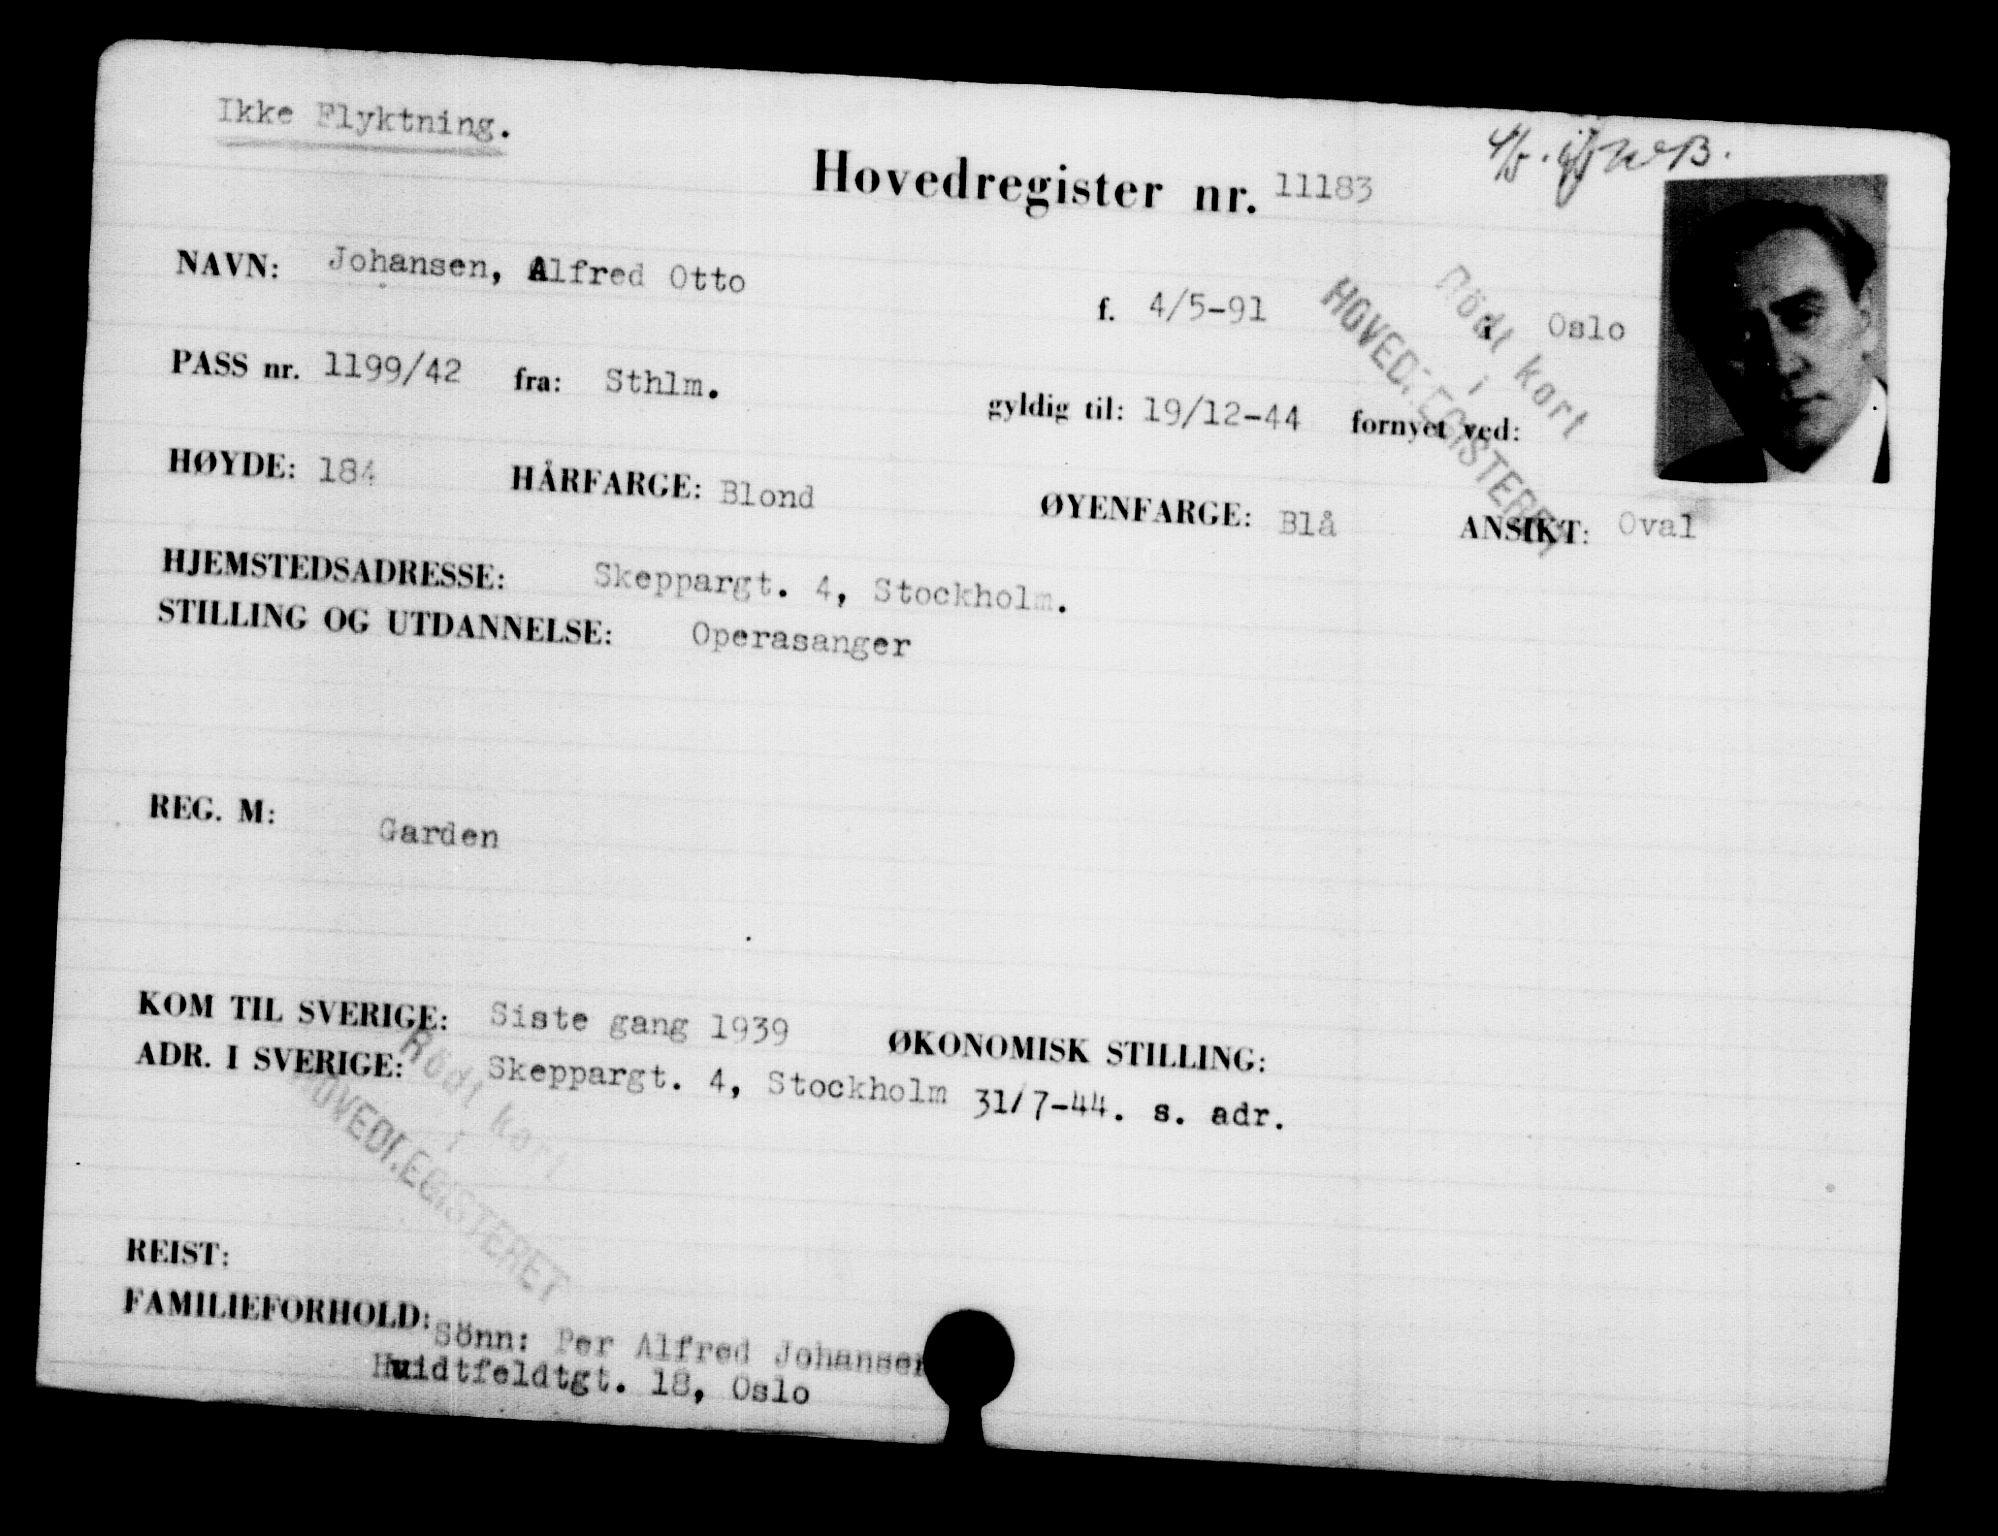 Ikke Flyktning.
Hovedregister nr. 11183
NAVN: Johansen, Alfred Otto f. 4/5-91 i Oslo
Rödt kort
i
HOVEDREGISTERET
PASS nr. 1199/42 fra: Sthlm. gyldig til: 19/12-44 fornyet ved:
HØYDE: 184 HÅRFARGE: Blond ØYENFARGE: Blå ANSIKT: Oval
HJEMSTEDSADRESSE: Skeppargt. 4, Stockholm.
STILLING OG UTDANNELSE: Operasanger
REG. M: Garden
KOM TIL SVERIGE: Siste gang 1939 ØKONOMISK STILLING:
ADR. I SVERIGE: Skeppargt. 4, Stockholm 31/7-44. s. adr.
Rödt kort
i
HOVEDREGISTERET
REIST:
FAMILIEFORHOLD: Sönn: Per Alfred Johansen
Huidtfeldtgt. 18, Oslo